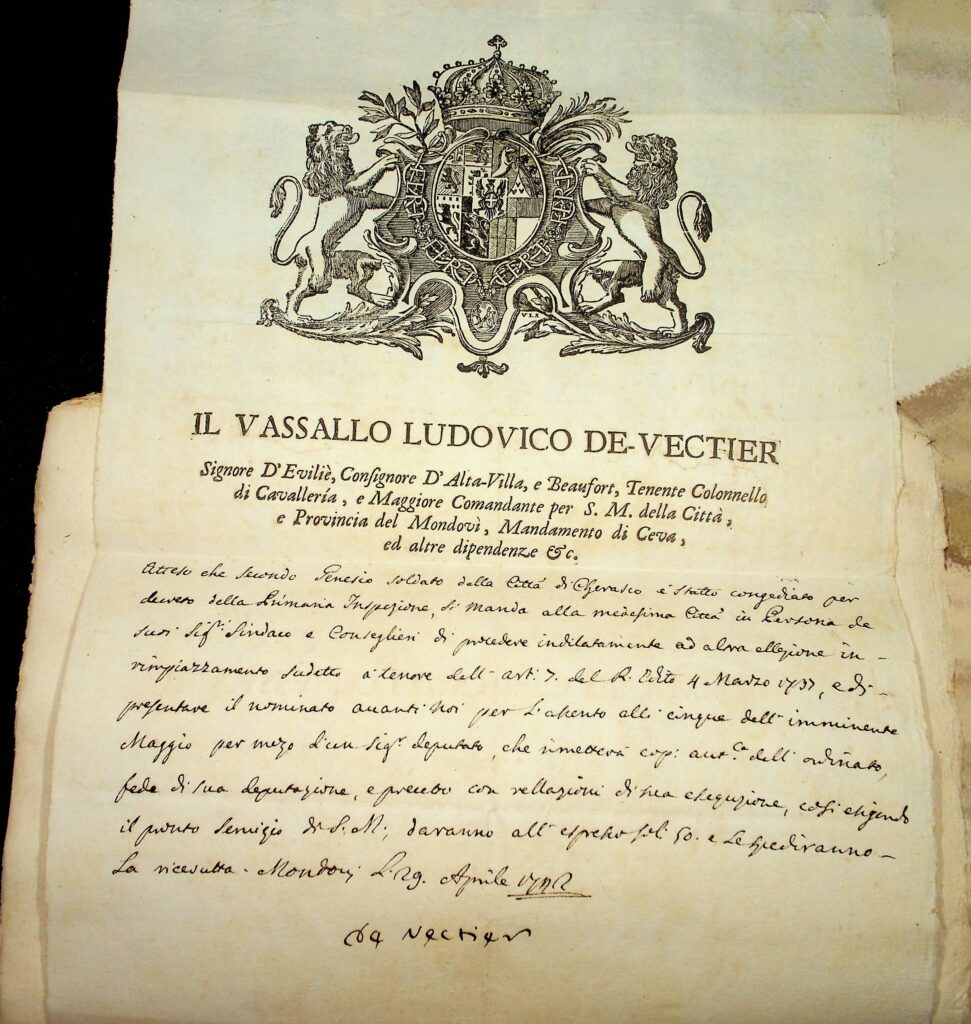 FERT FERT FERT FERT
IL VASSALLO LUDOVICO DE-VECTIER
Signore D'Eviliè, Consignore D'Alta-Villa, e Beaufort, Tenente Colonnello
di Cavallería, e Maggiore Comandante per S. M. della Città,
e Provincia del Mondovì, Mandamento di Ceva,
ed altre dipendenze &c.
Atteso che Secondo Genesio soldato della Città di Cherasco è statto congediato per
decreto della Primaria Inspezione, si manda alla medesima Città in Persona de
suoi Sigri Sindaco e Conseglieri di procedere indilatamente ad altra ellezione in
rimpiazzamento sudetto à tenore dell' art: 7. del R. Editto 4 Marzo 1737, e di
presentare il nominato avanti Noi per li cinque dell' imminente
Maggio per mezo d'un Sigr deputato, che rimetterà cop: autca dell' ordinato,
fede di sua deputazione, e precetto con rellazioni di sua esequzione, così esigendo
il pronto servigio di S. M; daranno all' espresso soli 50. e Le spediranno
La ricevutta. Mondovj Li 29. Aprile
De Vectier